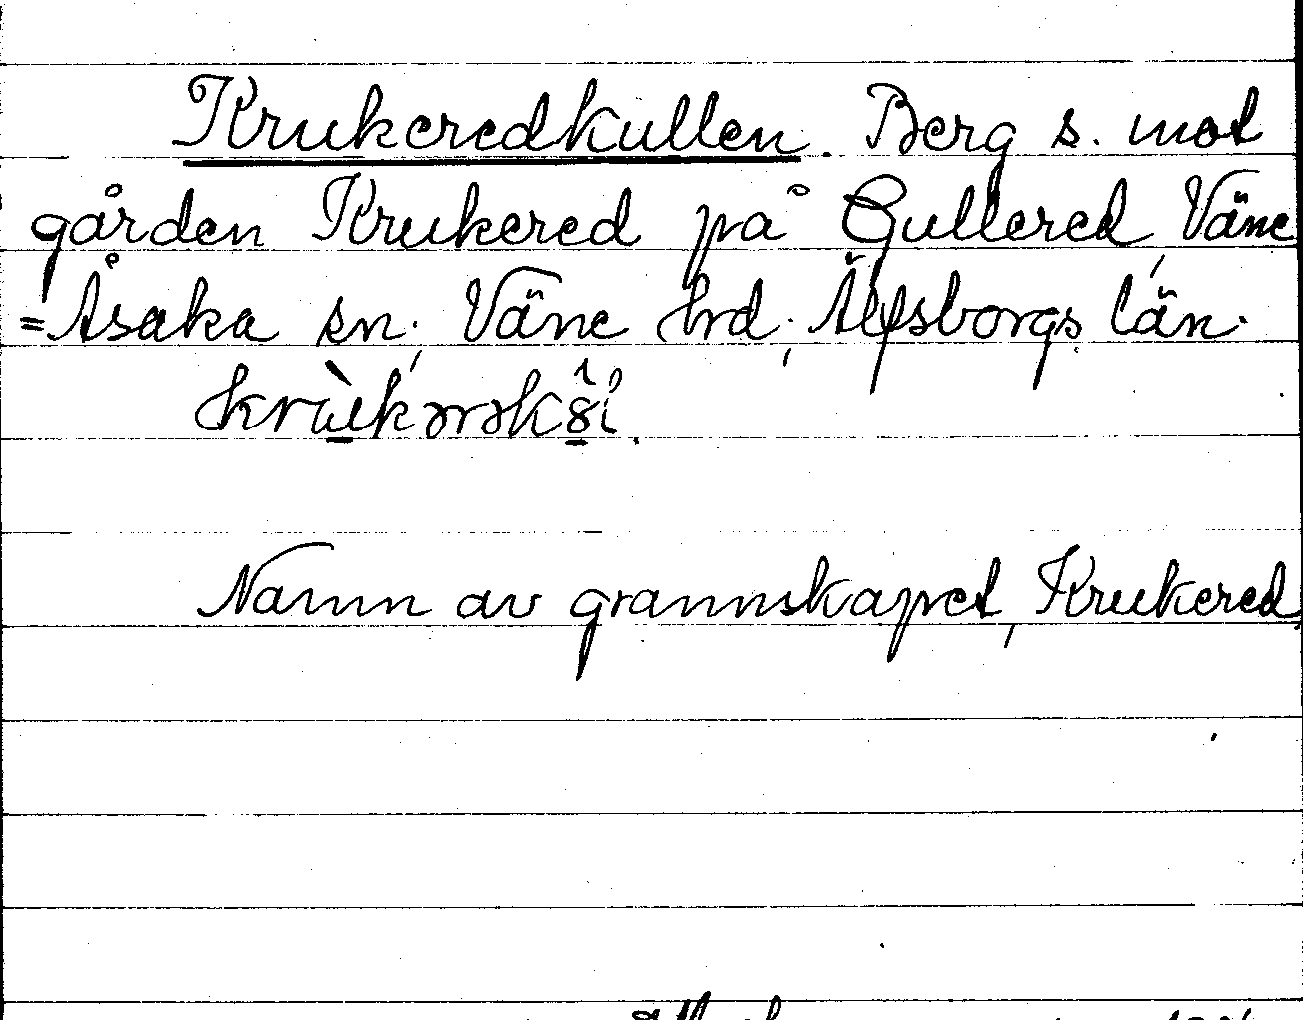 Krukeredkullen. Berg s. mot
gården Krukered på Gullered, Väne
=Åsaka sn., Väne hrd., Älfsborgs län.
Namn av grannskapet, Krukered.